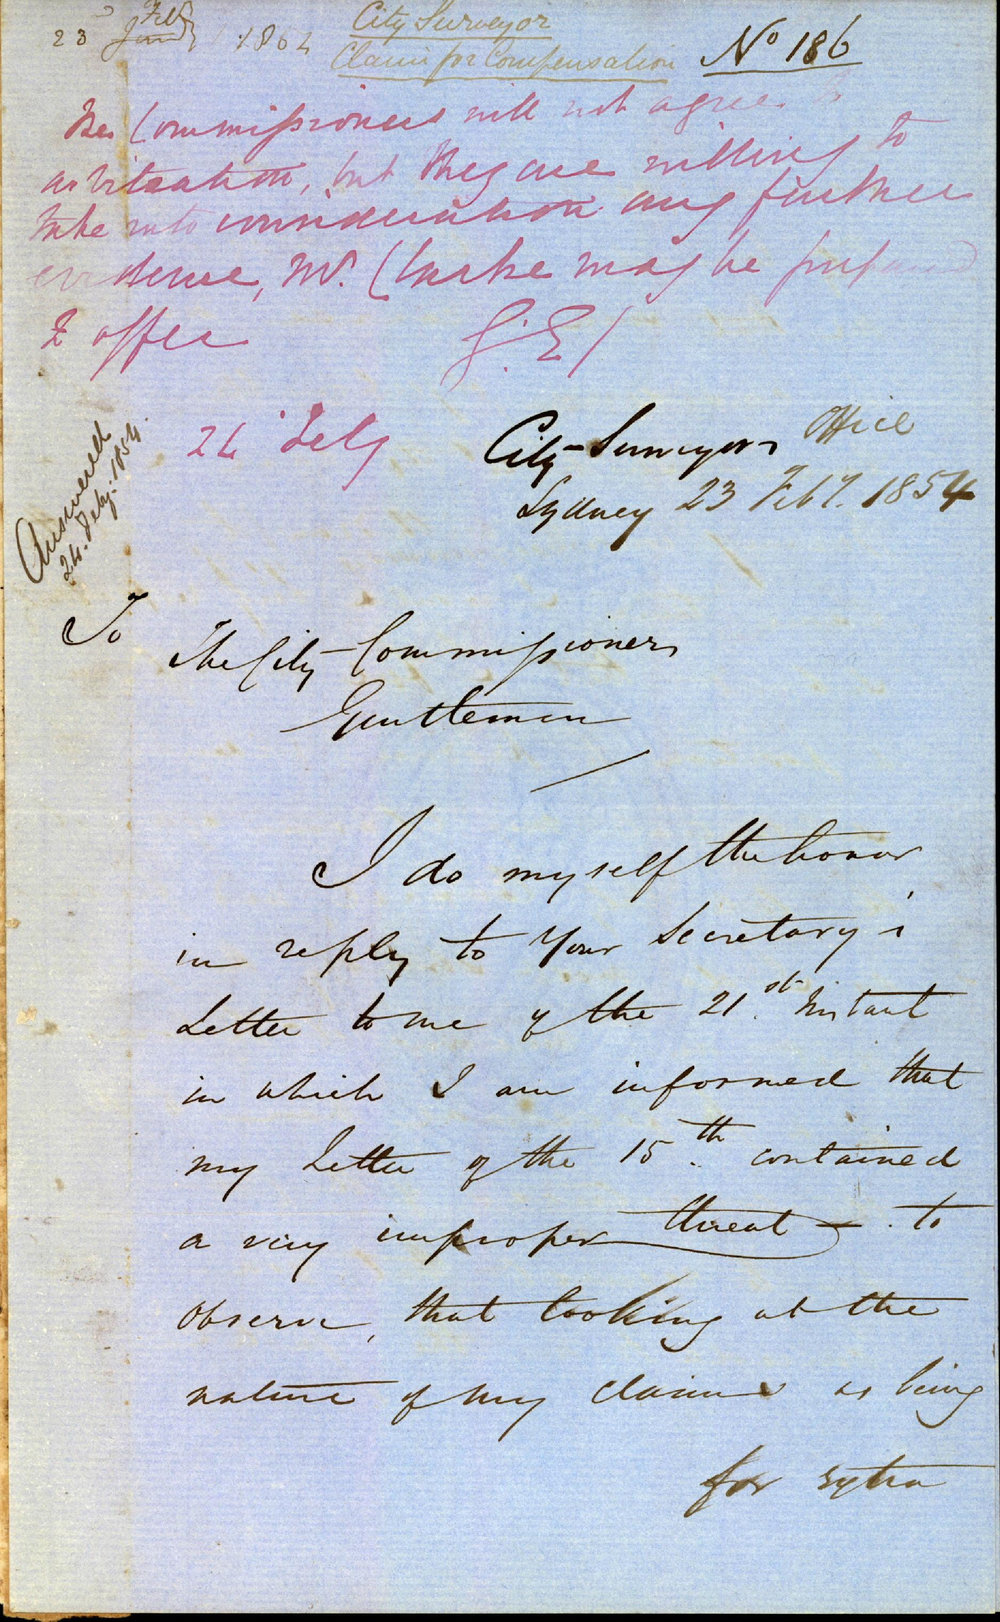 23 Feby 1854
City Surveyor
Claim for Compensation
No 186
The Commissioners will not agree to
arbitration, but they are willing to
take into consideration any further
evidence, Mr. Clarke may be prepared
to offer
G. E/
24 Feby
Answered
24. Feby. 1854.
City Surveyors Office
Sydney 23 Feby. 1854
To
The City Commissioners
Gentlemen
I do myself the honor
in reply to Your Secretary's
Letter to me of the 21st. Instant
in which I am informed that
my Letter of the 15th. contained
a very improper threat - to
observe, that looking at the
nature of my claim as being
for extra